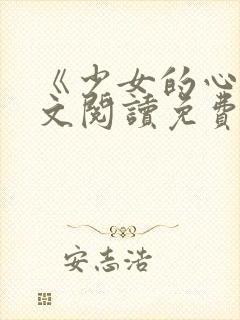 《少女的心
文閱讀免費
安志浩